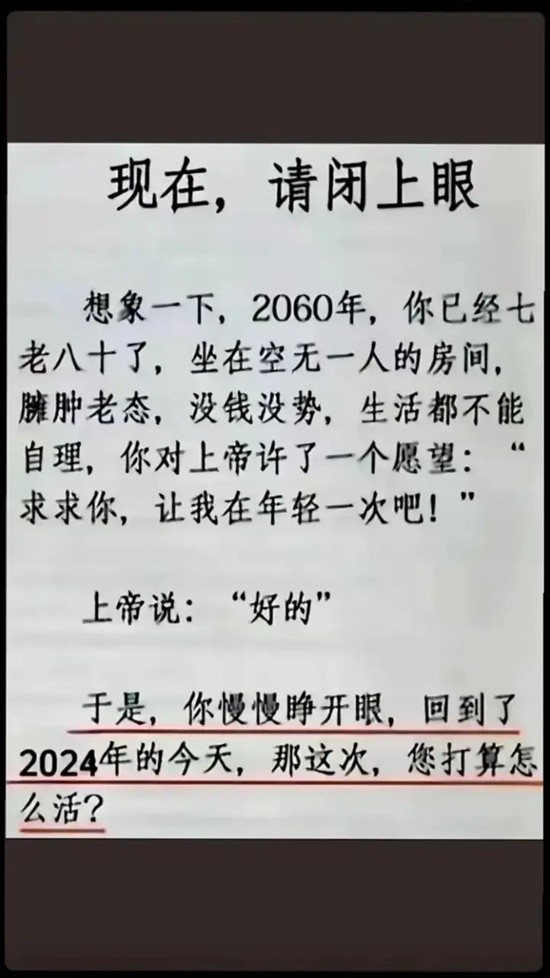 现在，请闭上眼
想象一下，2060年，你已经七
老八十了，坐在空无一人的房间，
臃肿老态，没钱没势，生活都不能
自理，你对上帝许了一个愿望：“
求求你，让我在年轻一次吧！”
上帝说：“好的”
于是，你慢慢睁开眼，回到了
2024年的今天，那这次，您打算怎
么活？